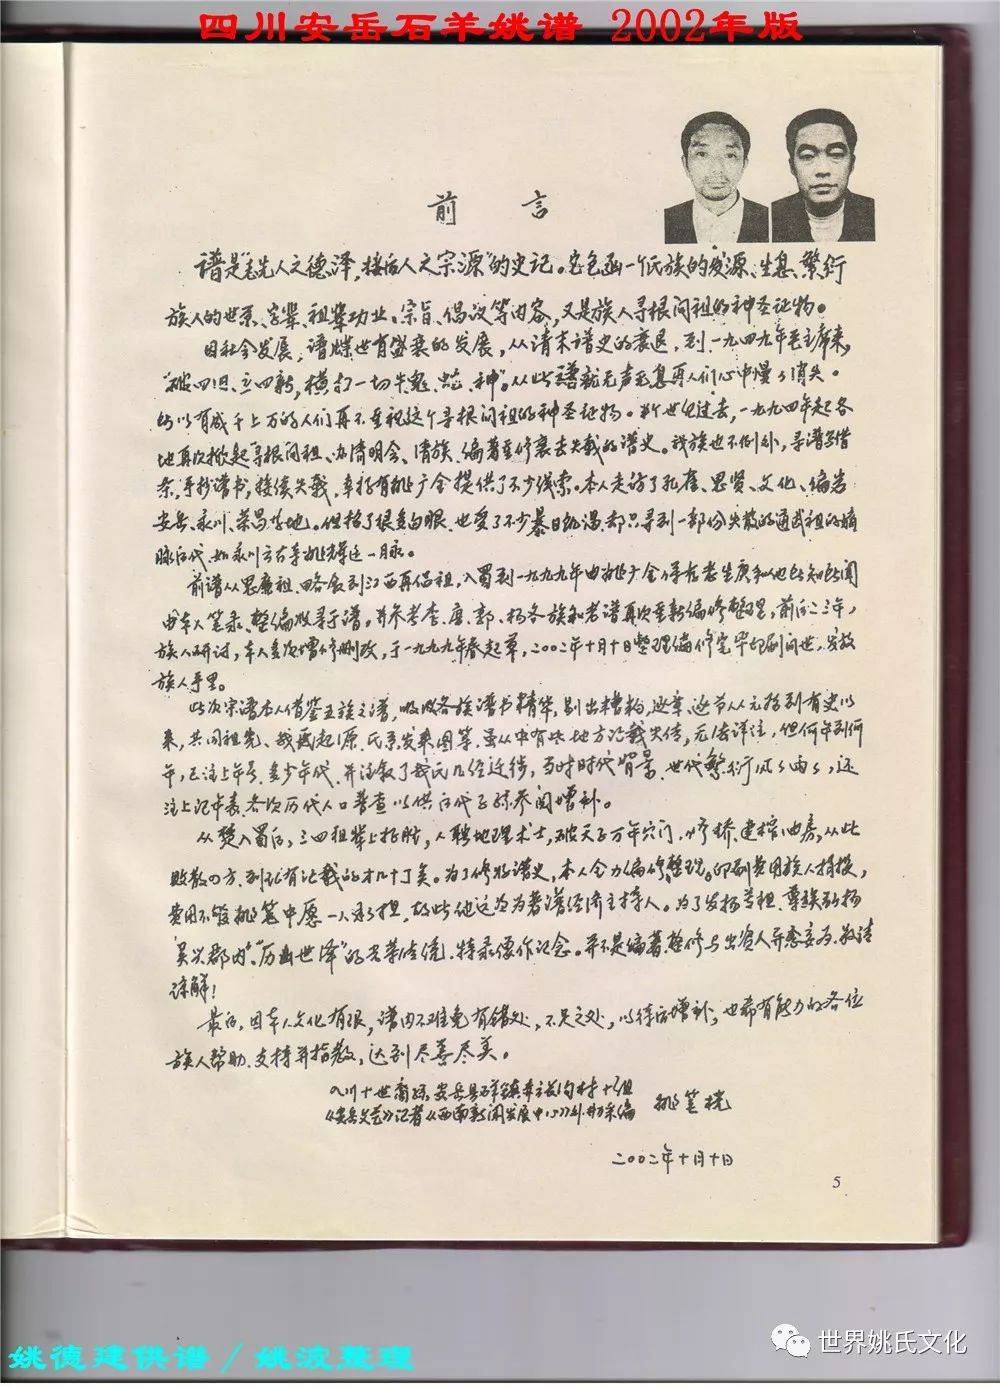 四川安岳石羊姚谱 2002年版
前 言
谱是"先人之德泽,接后人之宗源"的史记。它包函一个氏族的发源、生息、繁衍
族人的世系、字辈、祖辈功业、宗旨、倡议等内容,又是族人寻根问祖的神圣证物。
因社会发展,谱牒也有盛衰的发展,从清末谱史的衰退,到一九四九年毛主席来,
"破四旧、立四新,横扫一切牛鬼、蛇、神"。从此谱就无声无息再人们心中慢々消失。
所以有成千上万的人们再不重视这个寻根问祖的神圣证物。半个世纪过去,一九九四年起各
地再次掀起寻根问祖、办清明会、清族、编著重修衰去失载的谱史。我族也不例外,寻谱
手抄谱书,接续失载,幸好有姚广全提供了不少线索。本人走访了孔雀、思贤、文化、
安岳、永川、荣昌等地。但招了很多白眼,也受了不少暴日,却只寻到一部份失散的通武祖的
脉后代,如永川
前谱从思廉祖,略叙到江西再侣祖,入蜀到一九九九年由姚广全
由本人笔录、整编成手谱。并参考李、唐、郭、杨各族和老谱再次重新编修整理,前后二三年,
族人研讨,本人多次增修删改,于一九九九年春起草,二〇〇二年十月十日整理编修完毕印刷问世,发放
族人手里。
此次宗谱本人借鉴五族之谱,吸收各族谱书精华,剔出糟粕,
来,共同祖先、我氏起源、氏系发来图等,虽从中有些地方记载失传,无法详注,但何年到何
年,已注上年号、多少年代,并注叙了我氏几经迁徙,当时时代背景、世代繁衍风々雨々,还
注上记事表、各次历代人口普查以供后代子孙参阅增补。
从楚入蜀后,三四祖辈上,人聘地理术士,破天子万年穴门,修桥、建榨油房,从此
败散四方,到现有记载的才几十丁矣。为了修好谱史,本人全力编修整理。印刷费用族人捐投,
费用不够姚笔中愿一人承担,故此他这为著谱经济主持人。为了发扬
吴兴郡内"历山世泽"的光荣传统,特录像作记念。并不是编著、整修与出资人异想妄为,敬请
谅解!
最后,因本人文化有限,谱内不难免有错处,不足之处,以待后增补,也希有能力的各位
族人帮助、支持并指教,达到尽善尽美。
入川十世裔孙 安岳县石羊镇 村十组
《安岳文艺》记者《西南新闻发展中心》外勤采编 姚笔
二〇〇二年十月十日
5
姚德建供谱 / 姚波整理
世界姚氏文化